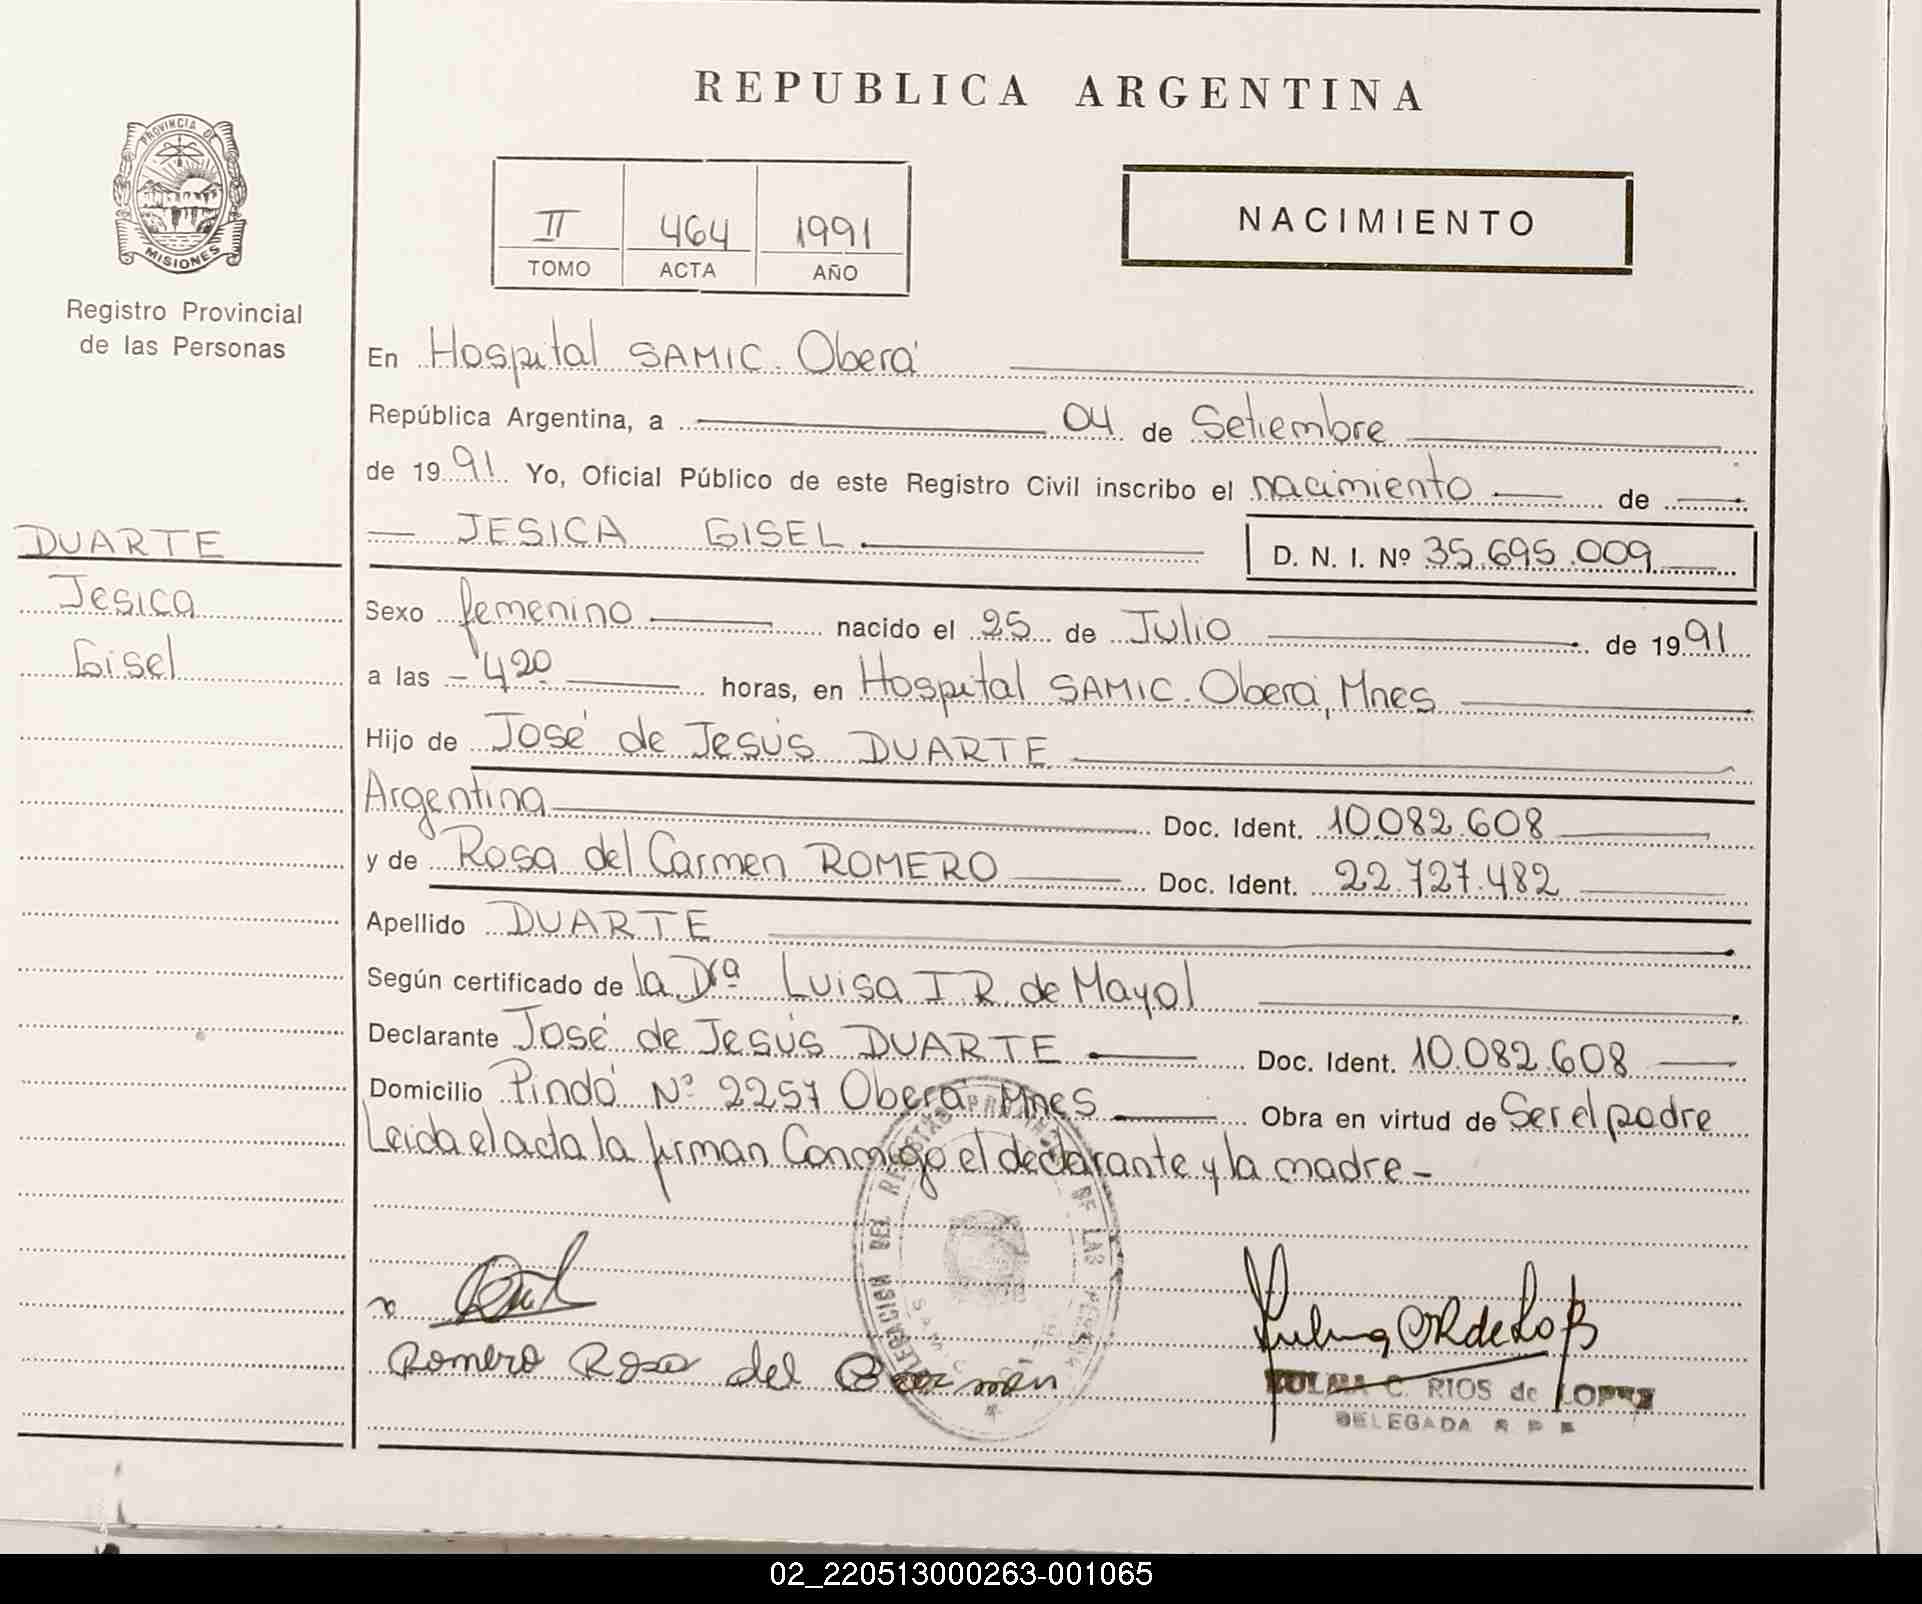 REPUBLICA ARGENTINA
PROVINCIA DE
MISIONES
Registro Provincial
de las Personas
II 464 1991
TOMO ACTA AÑO
NACIMIENTO
En Hospital SAMIC. Oberá
República Argentina, a 04 de Setiembre
de 1991. Yo, Oficial Público de este Registro Civil inscribo el nacimiento de
JESICA GISEL D. N. I. Nº 35.695.009
DUARTE
Jesica
Gisel
Sexo femenino nacido el 25 de Julio de 1991
a las 4 20 horas, en Hospital SAMIC. Oberá, Mnes
Hijo de José de Jesús DUARTE
Argentina Doc. Ident. 10.082.608
y de Rosa del Carmen ROMERO Doc. Ident. 22.727.482
Apellido DUARTE
Según certificado de la Drª Luisa I R. de Mayol
Declarante José de Jesús DUARTE Doc. Ident. 10.082.608
Domicilio Pindó Nº 2257 Oberá Mnes Obra en virtud de Ser el padre
Leida el acta la firman Conmigo el declarante y la madre-
DELEGACION DEL REGISTRO PROVINCIAL DE LAS PERSONAS
Romero Rosa del Carmen
ZULMA C. RIOS de LOPEZ
DELEGADA R P P
02_220513000263-001065